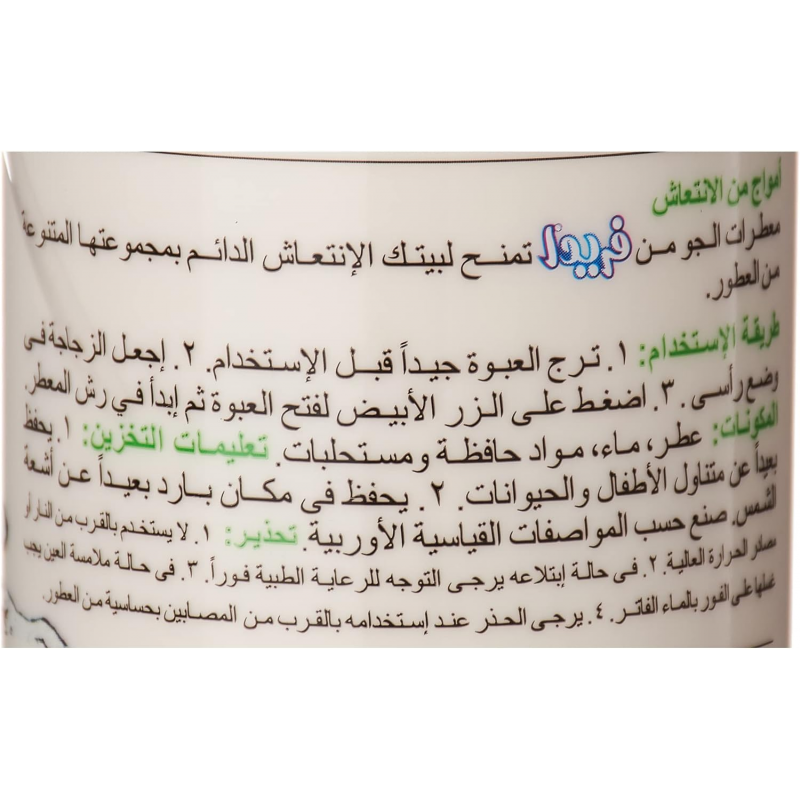 أمواج من الانتعاش
معطرات الجو من فريدا تمنح لبيتك الإنتعاش الدائم بمجموعتها المتنوعة
من العطور.
طريقة الإستخدام: ١. ترج العبوة جيداً قبل الإستخدام. ٢. إجعل الزجاجة فى
وضع رأسى. ٣. اضغط على الزر الأبيض لفتح العبوة ثم إبدأ في رش المعطر.
المكونات: عطر، ماء، مواد حافظة ومستحلبات. تعليمات التخزين: ١. يحفظ
بعيداً عن متناول الأطفال والحيوانات. ٢. يحفظ فى مكان بارد بعيداً عن أشعة
الشمس. صنع حسب المواصفات القياسية الأوربية. تحذير: ١. لا يستخدم بالقرب من النار أو
مصادر الحرارة العالية. ٢. فى حالة إبتلاعه يرجى التوجه للرعاية الطبية فوراً. ٣. فى حالة ملامسة العين يجب
غسلها على الفور بالماء الفاتر. ٤. يرجى الحذر عند إستخدامه بالقرب من المصابين بحساسية من العطور.